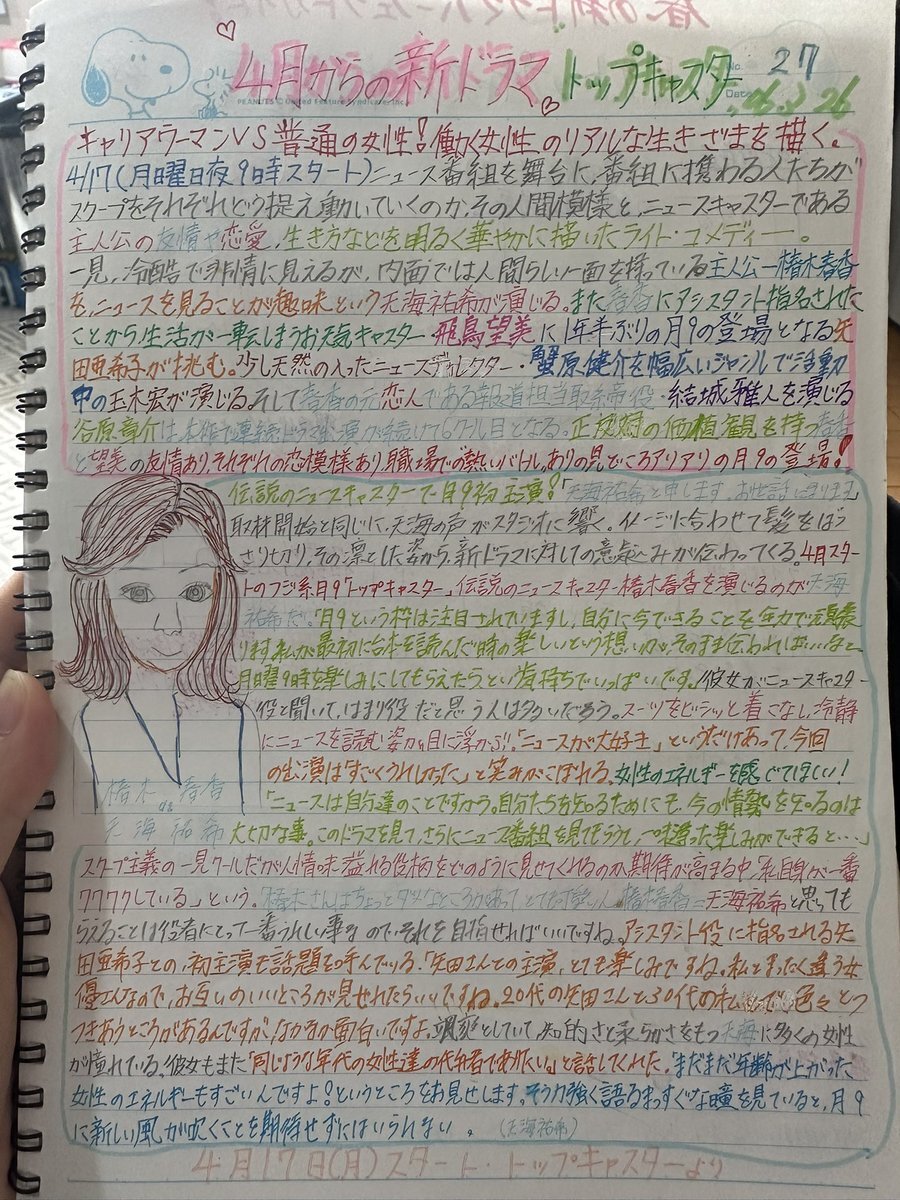 4月からの新ドラマ トップキャスター
No. 27
PEANUTS © United Feature Syndicate, Inc.
Date 26
キャリアウーマンVS普通の女性!働く女性のリアルな生きざまを描く。
4/17(月曜日夜9時スタート)ニュース番組を舞台に、番組に携わる人たちが
スクープをそれぞれどう捉え動いていくのか、その人間模様と、ニュースキャスターである
主人公の友情や恋愛、生き方などを明るく華やかに描いたライト・コメディー。
一見、冷酷で非情に見えるが、内面では人間らしい一面を持っている主人公―椿木春香
を、ニュースを見ることが趣味という天海祐希が演じる。また春香にアシスタント指名された
ことから生活が一転しまうお天気キャスター飛鳥望美に1年半ぶりの月9の登場となる矢
田亜希子が挑む。少し天然の入ったニュースディレクター・蟹原健介を幅広いジャンルで活動
中の玉木宏が演じる。そして春香の元恋人である報道担当取締役 結城雅人を演じる
谷原章介は、本作で連続ドラマ出演が続けて6クール目となる。正反対の価値観を持つ春香
と望美の友情あり、それぞれの恋模様あり、職場での熱いバトルありの見どころアリアリの月9の登場!
伝説のニュースキャスターで月9初主演!「天海祐希と申します。お世話になります」
取材開始と同じに、天海の声がスタジオに響く。イメージに合わせて髪をばっ
さり切り、その凛とした姿から、新ドラマに対しての意気込みが伝わってくる。4月スター
トのフジ系月9「トップキャスター」。伝説のニュースキャスター椿木春香を演じるのが天海
祐希だ。「月9という枠は注目されていますし、自分に今できることを全力で頑張
ります。私が最初に台本を読んだ時の楽しいという想いが、そのまま伝わればいいなと
月曜9時を楽しみにしてもらえたら、という気持ちでいっぱいです。」彼女がニュースキャスター
役と聞いて、はまり役だと思う人は多いだろう。スーツをビシッと着こなし、冷静
にニュースを読む姿が目に浮かぶ!「ニュースが大好き」というだけあって、今回
の出演は「すごくうれしかった」と笑みがこぼれる。女性のエネルギーを感じてほしい!
「ニュースは自分達のことですから。自分たちを知るためにも、今の情勢を知るのは
大切な事。このドラマを見て、さらにニュース番組を見てもらうと、一味違った楽しみができると…」
椿木 春香
天海祐希
スクープ主義の一見クールだが人情味溢れる役柄をどのように見せてくれるのか、期待が高まる中「私自身が一番
ワクワクしている」という。「椿木さんはちょっとダメなところがあって、とても 椿木春香=天海祐希と思っても
らえることは役者にとって一番うれしい事なので、それを目指せればいいですね。アシスタント役に指名される矢
田亜希子との、初主演も話題を呼んでいる。「矢田さんとの主演、とても楽しみですね。私とまったく違う女
優さんなので、お互いのいいところが見せれたらいいですね。20代の矢田さんと30代の私 色々とつ
つきあうところがあるんですが、なかなか面白いですよ。颯爽としていて、知的さと柔らかさをもつ天海に多くの女性
が憧れている。彼女もまた「同じような年代の女性達の代弁者でありたい。」と話してくれた。「まだまだ年齢が上がった
女性のエネルギーもすごいんですよ!というところをお見せします。そう力強く語るまっすぐな瞳を見ていると、月9
に新しい風が吹くことを期待せずにはいられない。 (天海祐希)
4月17日(月)スタート・トップキャスターより